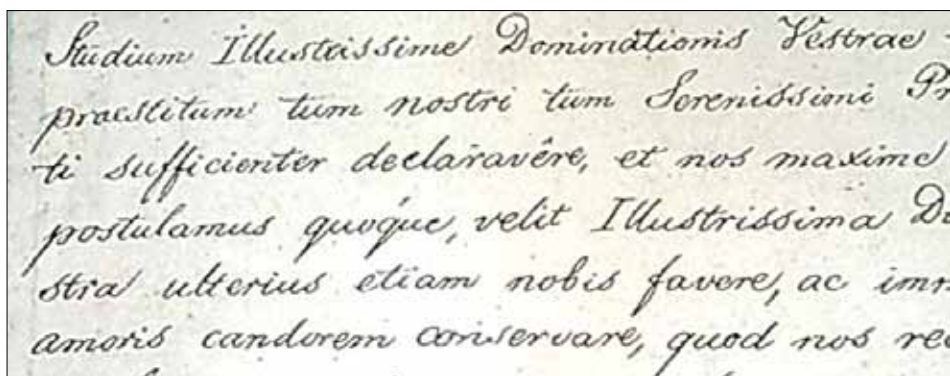 Studium Illustrissime Dominationis Vestrae
praestitum tum nostri tum Serenissimi Pr
ti sufficienter declaravêre, et nos maxime
postulamus quoque, velit Illustrissima D
stra ulterius etiam nobis favere, ac imm
amoris candorem conservare, quod nos re